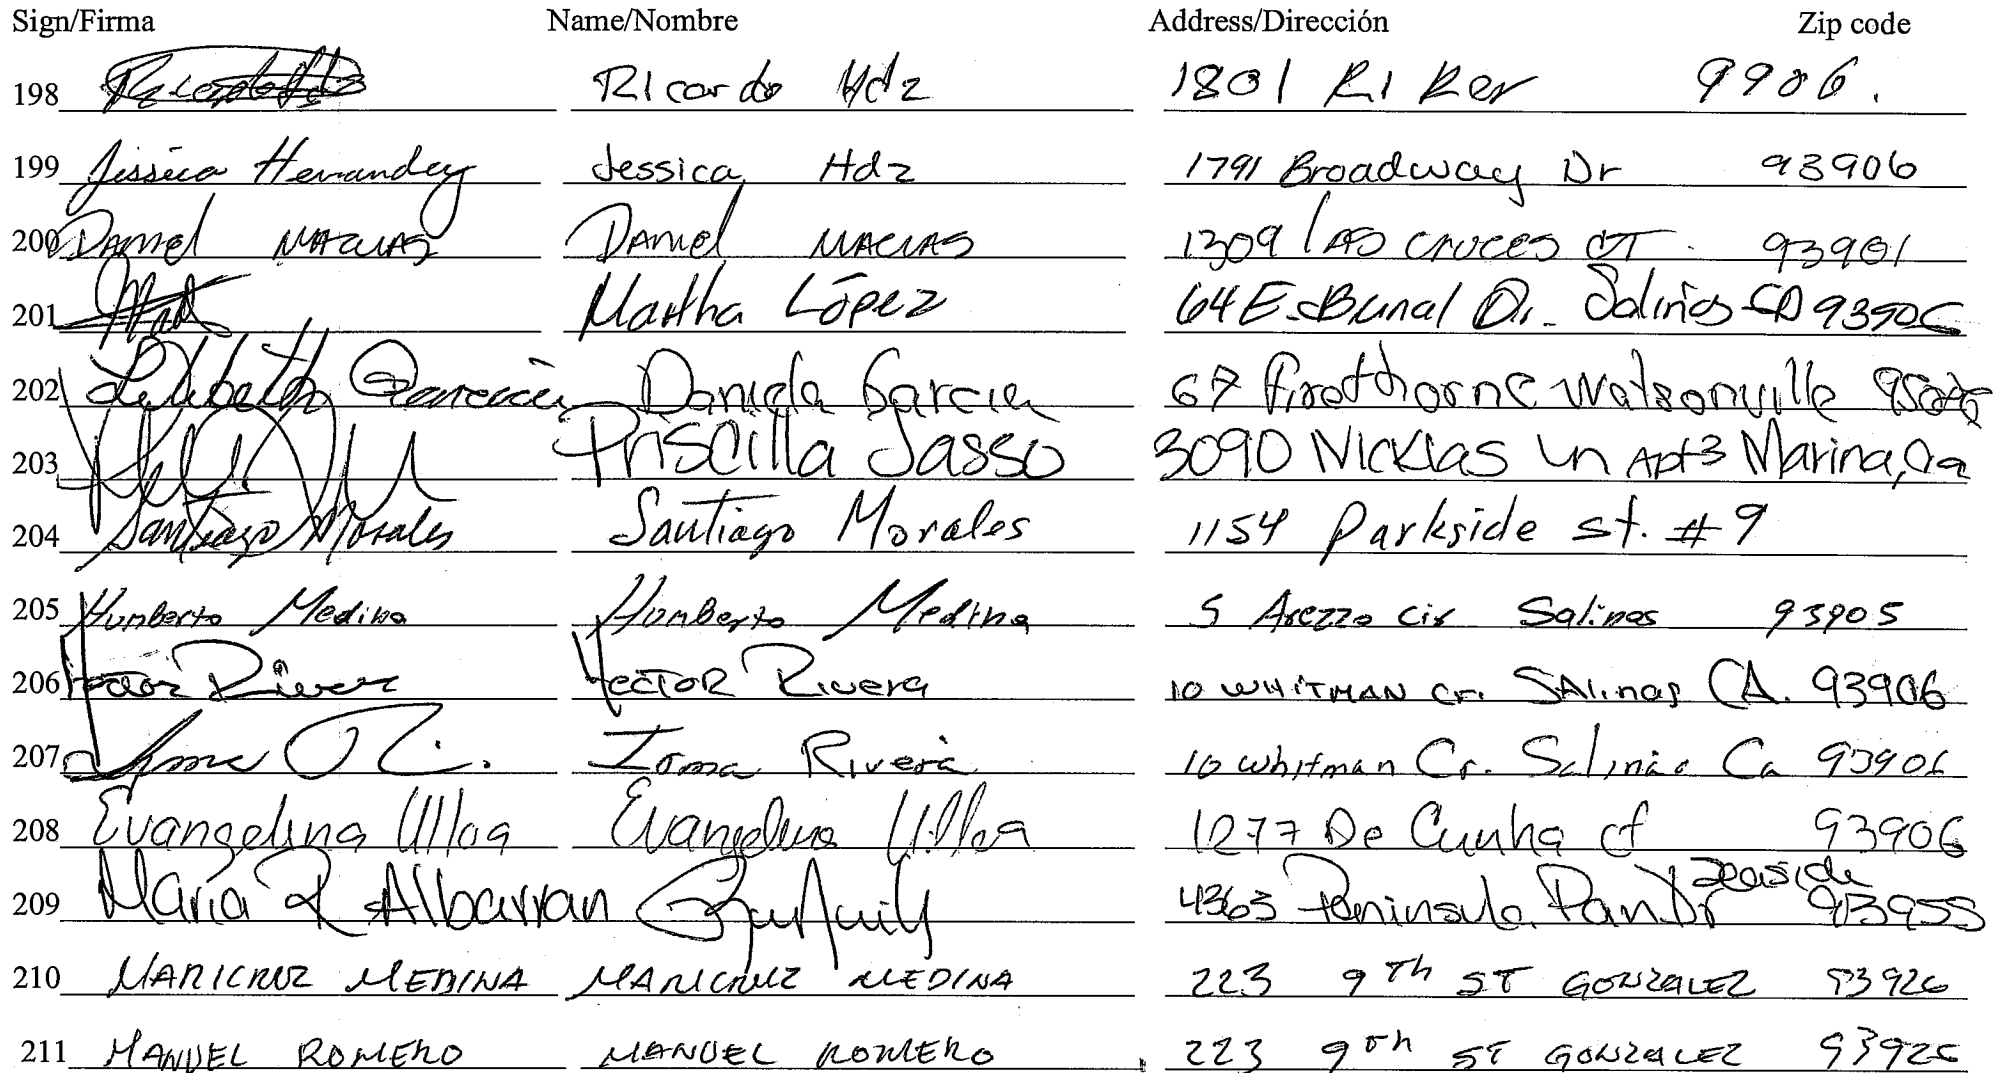 Sign/Firma Name/Nombre Address/Dirección Zip code
198 Ricardo Hdz Ricardo Hdz 1801 Riker 9906.
199 Jessica Hernandez Jessica Hdz 1791 Broadway Dr 93906
200 Daniel MACIAS Daniel MACIAS 1309 LAS CRUCES CT. 93901
201 Martha López 64 E. Dr. Salinas CA 93906
202 Lilibeth Daniela Garcia 67 Firethorne Watsonville
203 Priscilla Jasso 3090 Nicklas Ln Apt 3 Marina, Ca
204 Santiago Morales Santiago Morales 1154 Parkside st. # 9
205 Humberto Medina Humberto Medina 5 Arezzo cir Salinas 93905
206 Hector Rivera HECTOR Rivera 10 WHITMAN Cr. SAlinas CA. 93906
207 Irma R. Irma Rivera 10 Whitman Cr. Salinas Ca 93906
208 Evangelina Ulloa Evangelina Ulloa 1277 De Cunha ct 93906
209 Maria R Albarran 4363 Peninsula Pan. Dr Seaside 93955
210 MARICRUZ MEDINA MARICRUZ MEDINA 223 9Th ST GONZALEZ 93926
211 MANUEL ROMERO MANUEL ROMERO 223 9th ST GONZALEZ 93926